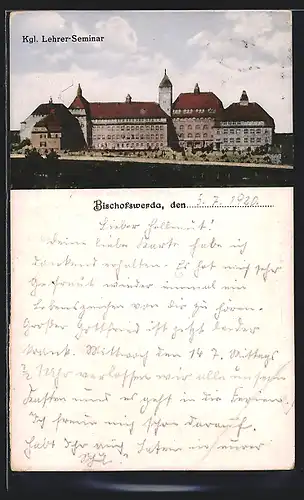 Kgl. Lehrer-Seminar
Bischofswerda, den 5. 7. 1920
Lieber Hellmut!
Deine liebe Karte habe ich
dankend erhalten. Es hat mich sehr
gefreut wieder einmal ein
Lebenszeichen von dir zu hören.
Großer Gottfried ist jetzt leider
krank. Mittwoch den 14 7. Mittags
½ 1 Uhr verlassen wir alle unseren
Kasten und es geht in die Ferien.
Ich freue mich schon darauf.
Habt Ihr auch in eurer